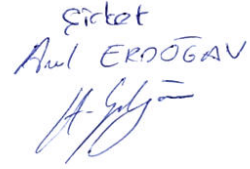 şirket
Anıl ERDOĞAN